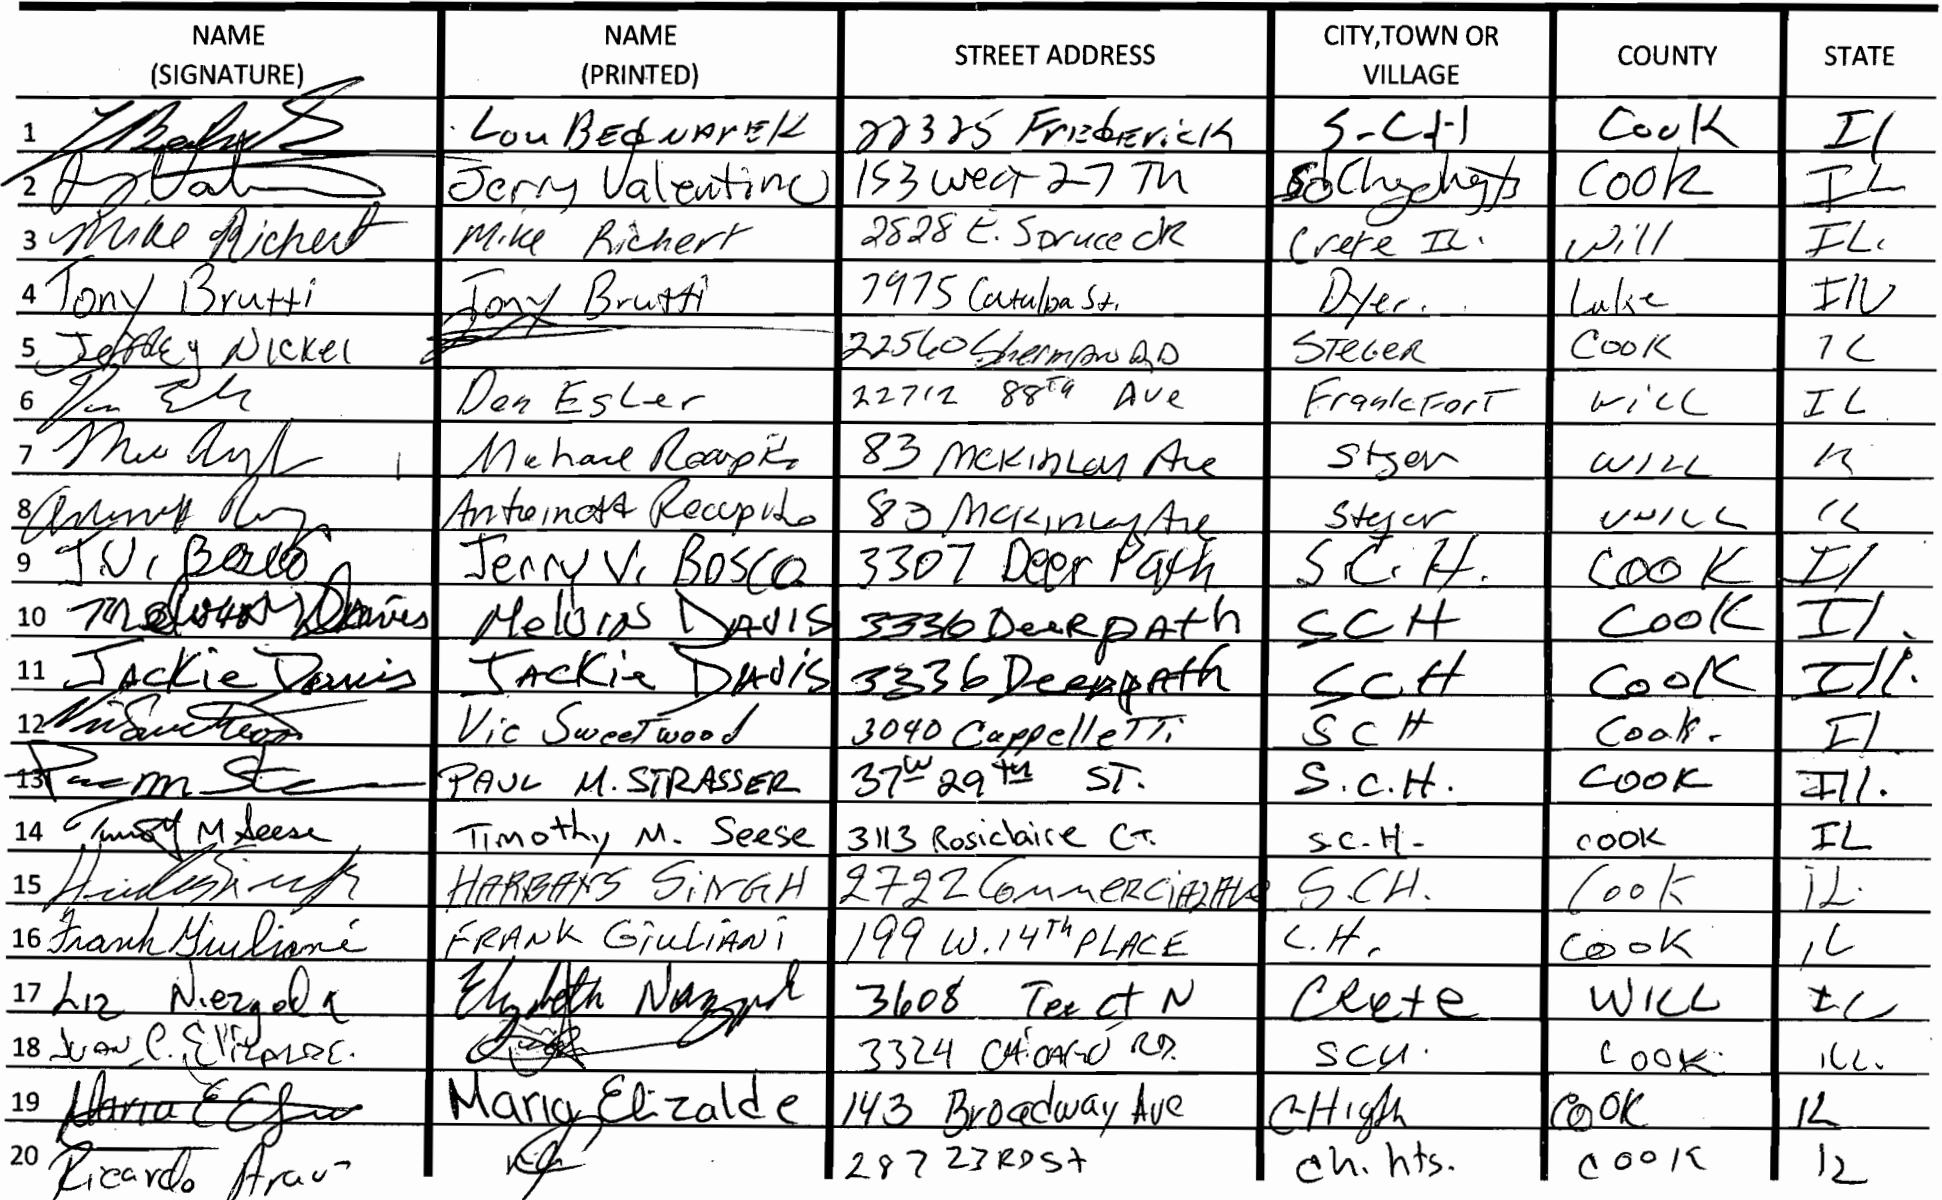 NAME (SIGNATURE) NAME (PRINTED) STREET ADDRESS CITY,TOWN OR VILLAGE COUNTY STATE
1 Lou BEDNAREK 22325 FREDERICK S-C-H Cook Il
2 Jerry Valentino 153 West 27 Th So Chgo hgts COOK IL
3 Mike Richert Mike Richert 2828 E. Spruce ck Crete IL. Will IL.
4 Tony Brutti Tony Brutti 7975 Catulpa St. Dyer. Luke
5 Jeffrey Nickel 22560 Sherman RD STEGER COOK IL
6 Dan Esler 22712 88TH Ave Frankfort WILL IL
7 83 McKinley Ave Steger WILL IL
8 83 McKinley Ave Steger WILL IL
9 J.V. Bosco Jerry V. BOSCO 3307 Deer Path S.C.H. COOK Il
10 Melvin Davis Melvin DAVIS 3336 Deerpath SCH COOK Il.
11 JACKie Davis JACKie DAVIS 3336 Deerpath SCH COOK Ill.
12 Vic Sweetwood Vic Sweetwood 3040 Cappelletti SCH Cook. Il.
13 PAUL M. STRASSER 37 W 29TH ST. S.C.H. COOK Ill.
14 Timothy M Seese Timothy M. Seese 3113 Rosiclaire CT. S.C.H. COOK IL
15 HARBANS SINGH 2722 Commercial Ave S.C.H. Cook IL.
16 Frank Giuliani FRANK GIULIANI 199 W. 14Th PLACE C.H. COOK IL
17 Liz Niezgoda Elizabeth Niezgoda 3608 Tee ct N Crete WILL IL
18 JUAN C. ELIZALDE. 3324 CHICAGO RD. SCH. COOK. ILL.
19 Maria E Maria Elizalde 143 Broadway Ave C-High COOK IL
20 Ricardo 287 23RD St ch. hts. COOK IL